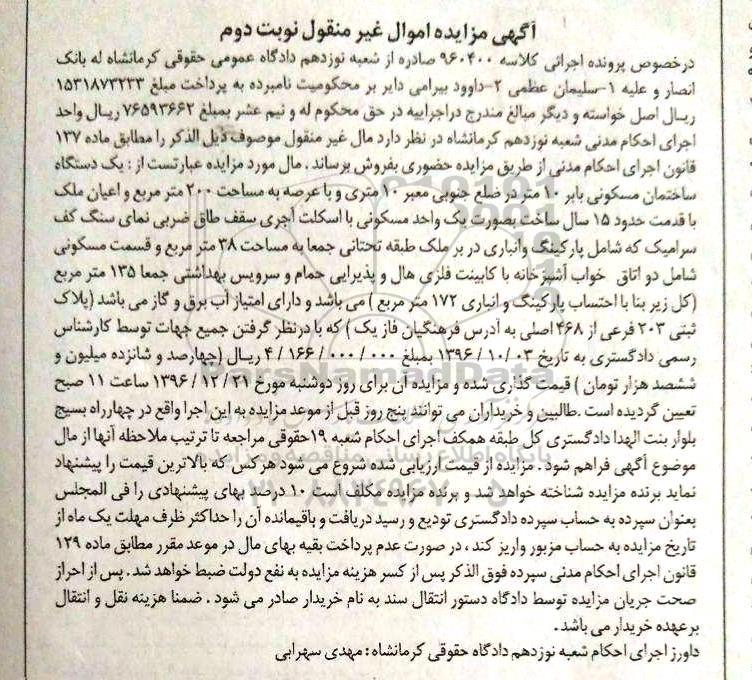 آگهی مزایده اموال غیر منقول نوبت دوم
درخصوص پرونده اجرائی کلاسه ۹۶۰۴۰۰ صادره از شعبه نوزدهم دادگاه عمومی حقوقی کرمانشاه له بانک
انصار و علیه ۱-سلیمان عظمی ۲-داوود بیرامی دایر بر محکومیت نامبرده به پرداخت مبلغ ۱۵۳۱۸۷۳۲۳۳
ریال اصل خواسته و دیگر مبالغ مندرج دراجراییه در حق محکوم له و نیم عشر بمبلغ ۷۶۵۹۳۶۶۲ ریال واحد
اجرای احکام مدنی شعبه نوزدهم کرمانشاه در نظر دارد مال غیر منقول موصوف ذیل الذکر را مطابق ماده ۱۳۷
قانون اجرای احکام مدنی از طریق مزایده حضوری بفروش برساند . مال مورد مزایده عبارتست از : یک دستگاه
ساختمان مسکونی بابر ۱۰ متر در ضلع جنوبی معبر ۱۰ متری و با عرصه به مساحت ۲۰۰ متر مربع و اعیان ملک
با قدمت حدود ۱۵ سال ساخت بصورت یک واحد مسکونی با اسکلت آجری سقف طاق ضربی نمای سنگ کف
سرامیک که شامل پارکینگ وانباری در بر ملک طبقه تحتانی جمعا به مساحت ۳۸ متر مربع و قسمت مسکونی
شامل دو اتاق خواب آشپزخانه با کابینت فلزی هال و پذیرایی حمام و سرویس بهداشتی جمعا ۱۳۵ متر مربع
(کل زیر بنا با احتساب پارکینگ و انباری ۱۷۲ متر مربع ) می باشد و دارای امتیاز آب برق و گاز می باشد (پلاک
ثبتی ۲۰۳ فرعی از ۴۶۸ اصلی به آدرس فرهنگیان فاز یک ) که با درنظر گرفتن جمیع جهات توسط کارشناس
رسمی دادگستری به تاریخ ۱۳۹۶/۱۰/۰۳ بمبلغ ۴/۱۶۶/۰۰۰/۰۰۰ ریال (چهارصد و شانزده میلیون و
ششصد هزار تومان ) قیمت گذاری شده و مزایده آن برای روز دوشنبه مورخ ۱۳۹۶/۱۲/۲۱ ساعت ۱۱ صبح
تعیین گردیده است .طالبین و خریداران می توانند پنج روز قبل از موعد مزایده به این اجرا واقع در چهارراه بسیج
بلوار بنت الهدا دادگستری کل طبقه همکف اجرای احکام شعبه ۱۹حقوقی مراجعه تا ترتیب ملاحظه آنها از مال
موضوع آگهی فراهم شود . مزایده از قیمت ارزیابی شده شروع می شود هر کس که بالاترین قیمت را پیشنهاد
نماید برنده مزایده شناخته خواهد شد و برنده مزایده مکلف است ۱۰ درصد بهای پیشنهادی را فی المجلس
بعنوان سپرده به حساب سپرده دادگستری تودیع و رسید دریافت و باقیمانده آن را حداکثر ظرف مهلت یک ماه از
تاریخ مزایده به حساب مزبور واریز کند ، در صورت عدم پرداخت بقیه بهای مال در موعد مقرر مطابق ماده ۱۲۹
قانون اجرای احکام مدنی سپرده فوق الذکر پس از کسر هزینه مزایده به نفع دولت ضبط خواهد شد . پس از احراز
صحت جریان مزایده توسط دادگاه دستور انتقال سند به نام خریدار صادر می شود . ضمنا هزینه نقل و انتقال
برعهده خریدار می باشد .
داورز اجرای احکام شعبه نوزدهم دادگاه حقوقی کرمانشاه : مهدی سهرابی
ParsNamadData
پایگاه اطلاع رسانی مناقصه و مزایده